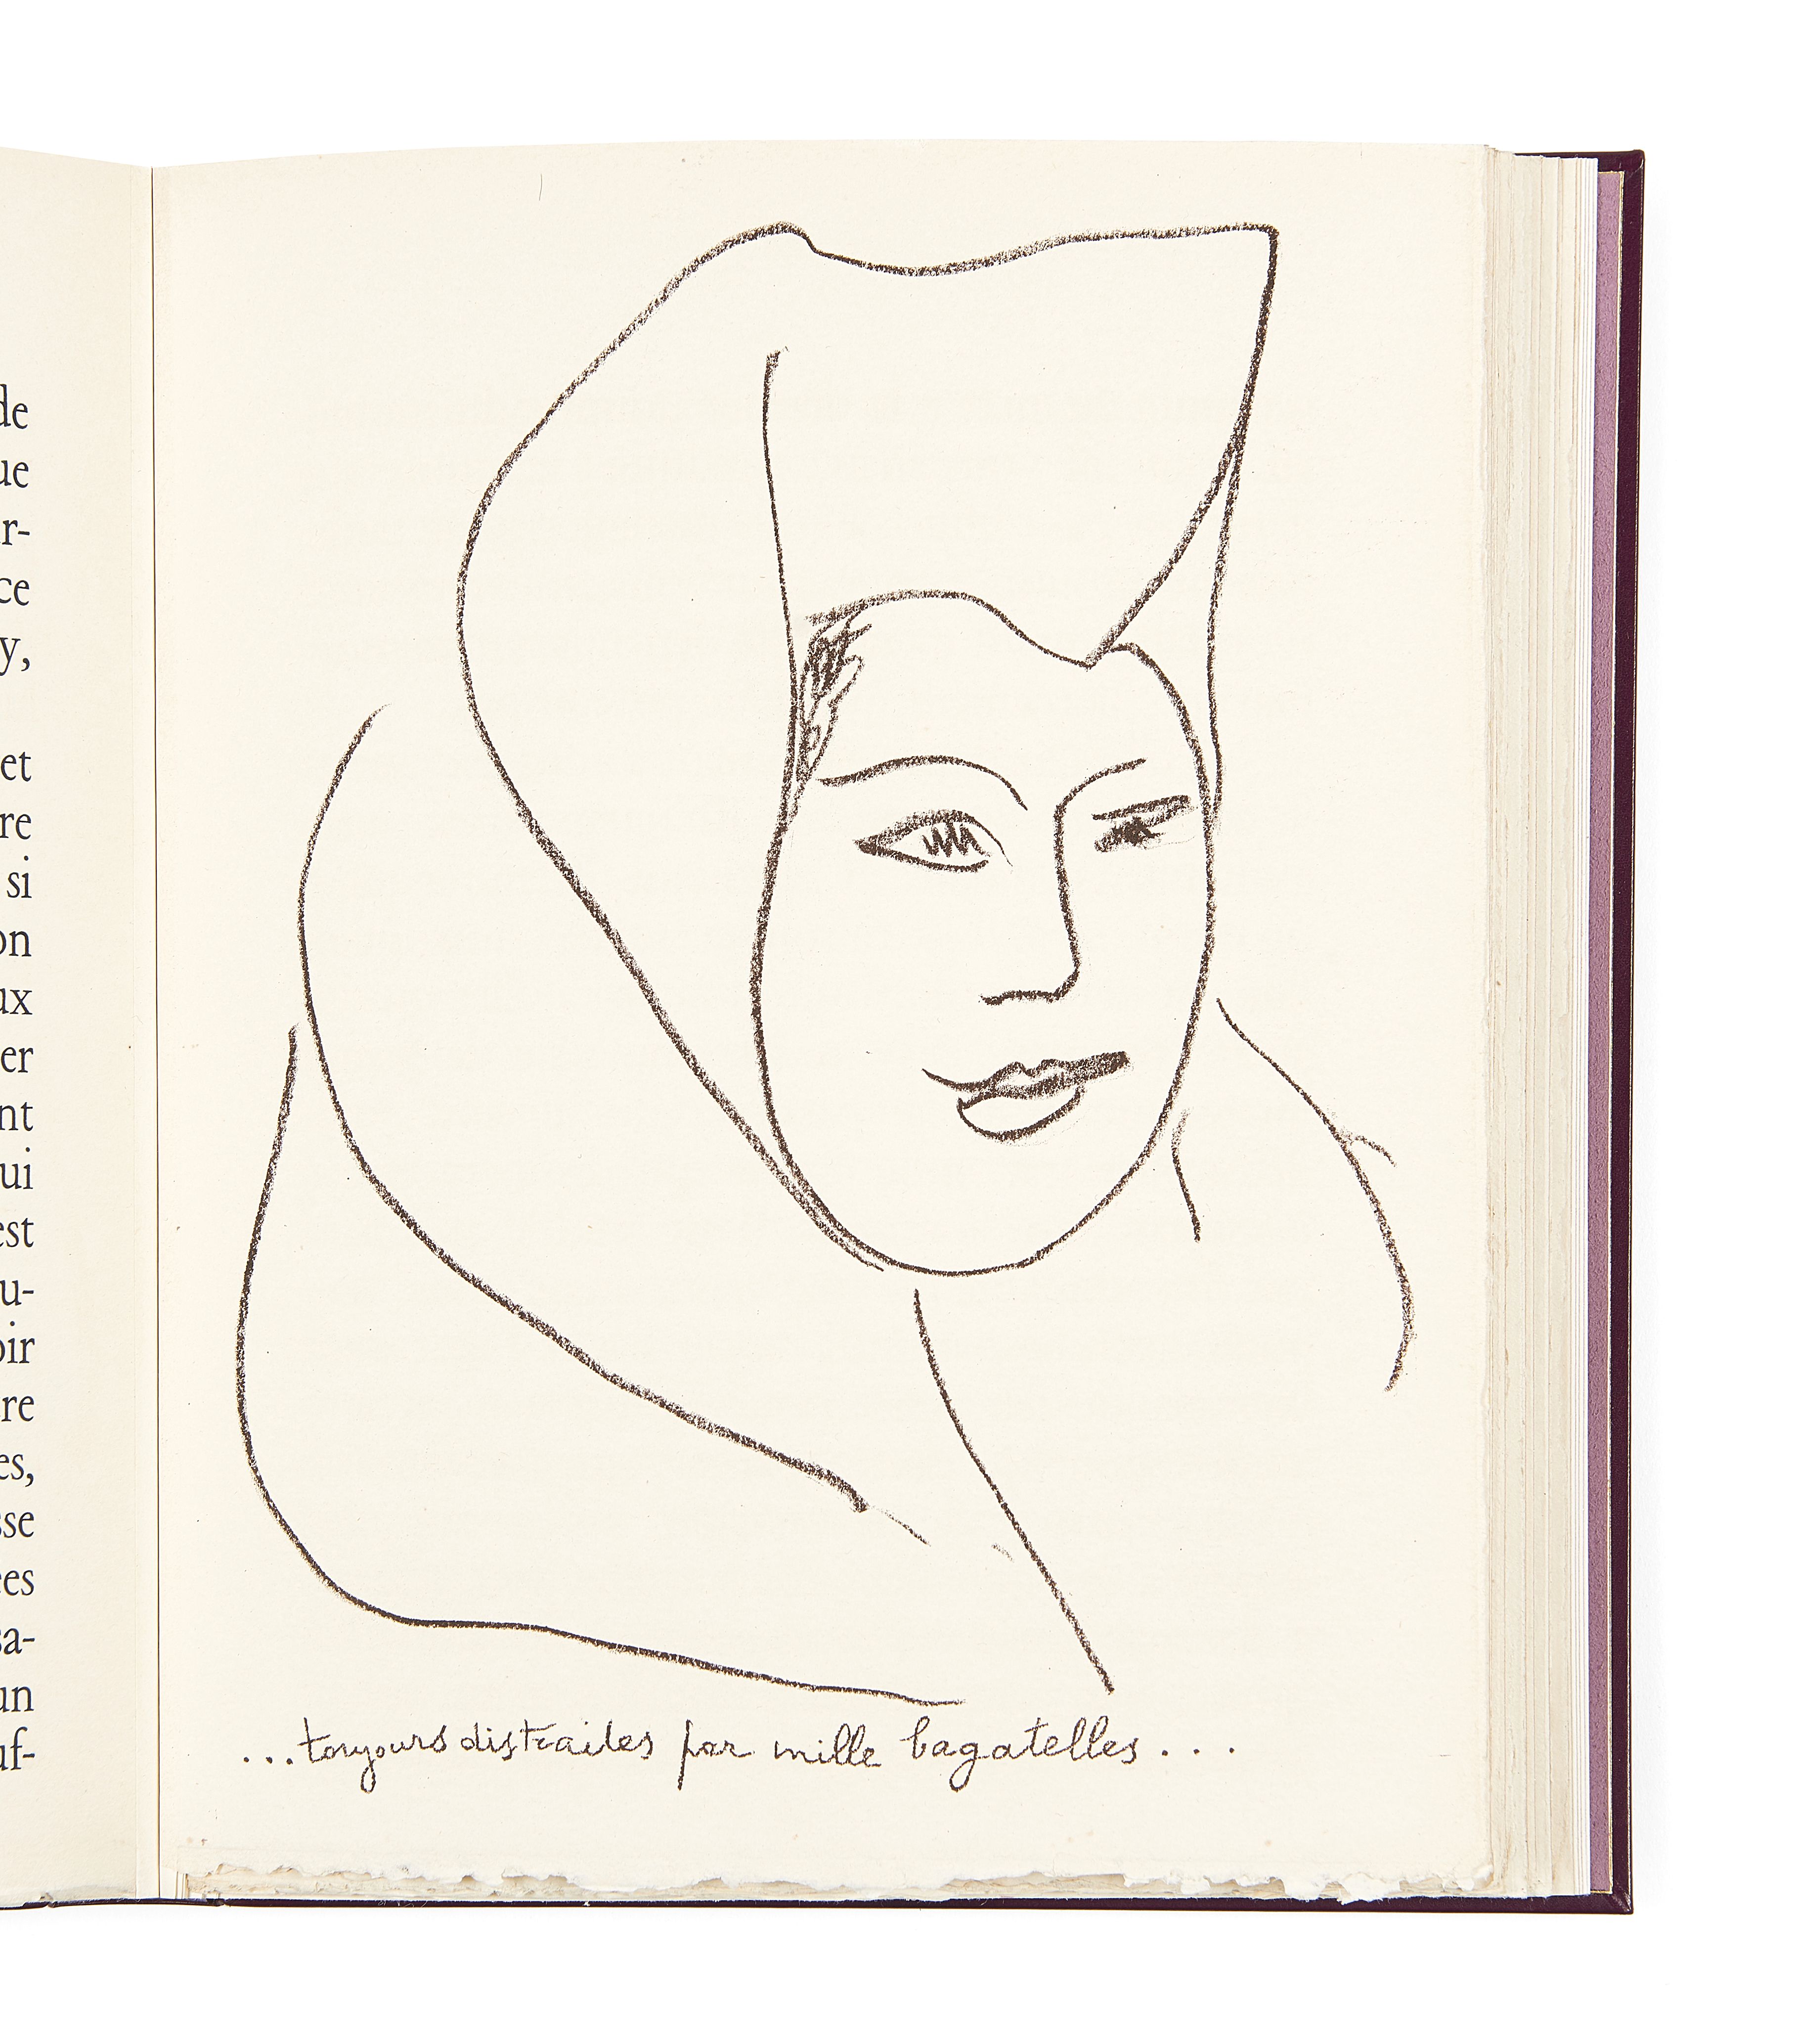 de
ue
r-
ce
y,
et
re
si
on
ux
er
nt
ui
est
u-
oir
re
es,
sse
ees
sa-
un
uf-
...toujours distraites par mille bagatelles...